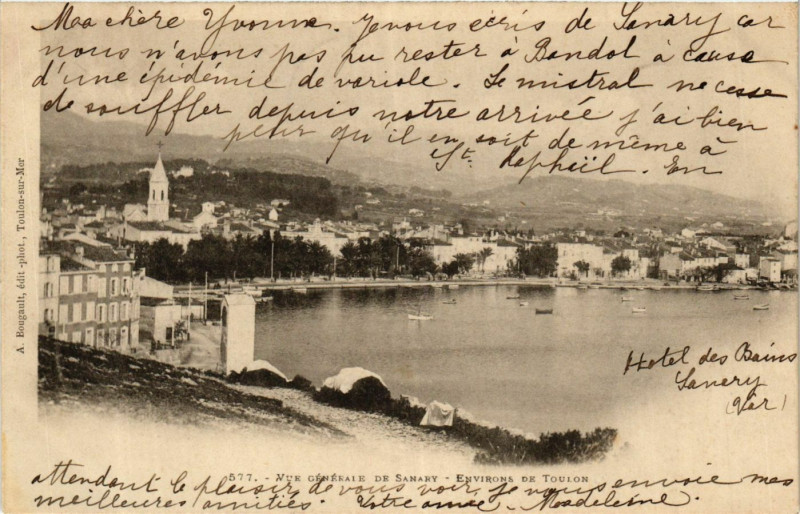 Ma chère Yvonne. Je vous écris de Sanary car
nous n'avons pas pu rester à Bandol à cause
d'une épidémie de variole. Le mistral ne cesse
de souffler depuis notre arrivée j'ai bien
peur qu'il en soit de même à
St. Raphaël. En
A. Bougault, édit.-phot., Toulon-sur-Mer
Hotel des Bains
Sanary
(Var)
577. - VUE GÉNÉRALE DE SANARY - ENVIRONS DE TOULON
attendant le plaisir de vous voir, je vous envoie mes
meilleures amitiés. Votre amie. Madeleine.